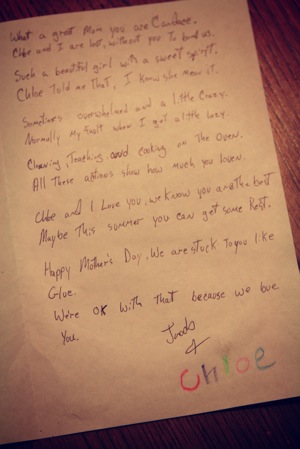 What a great Mom you are Candace.
Chloe and I are lost, without you to bind us.
Such a beautiful girl with a sweet spirit.
Chloe Told me that, I Know she mean it.
Sometimes overwhelmed and a little Crazy.
Normally my fault when I get a little lazy.
Cleaning, Teaching, and cooking on the Oven.
All These actions show how much you loven.
Chloe and I Love you, we know you are the best
Maybe this summer you can get some Rest.
Happy Mother's Day, We are stuck To you like
Glue.
We're OK with that because we love
You.
+
Chloe